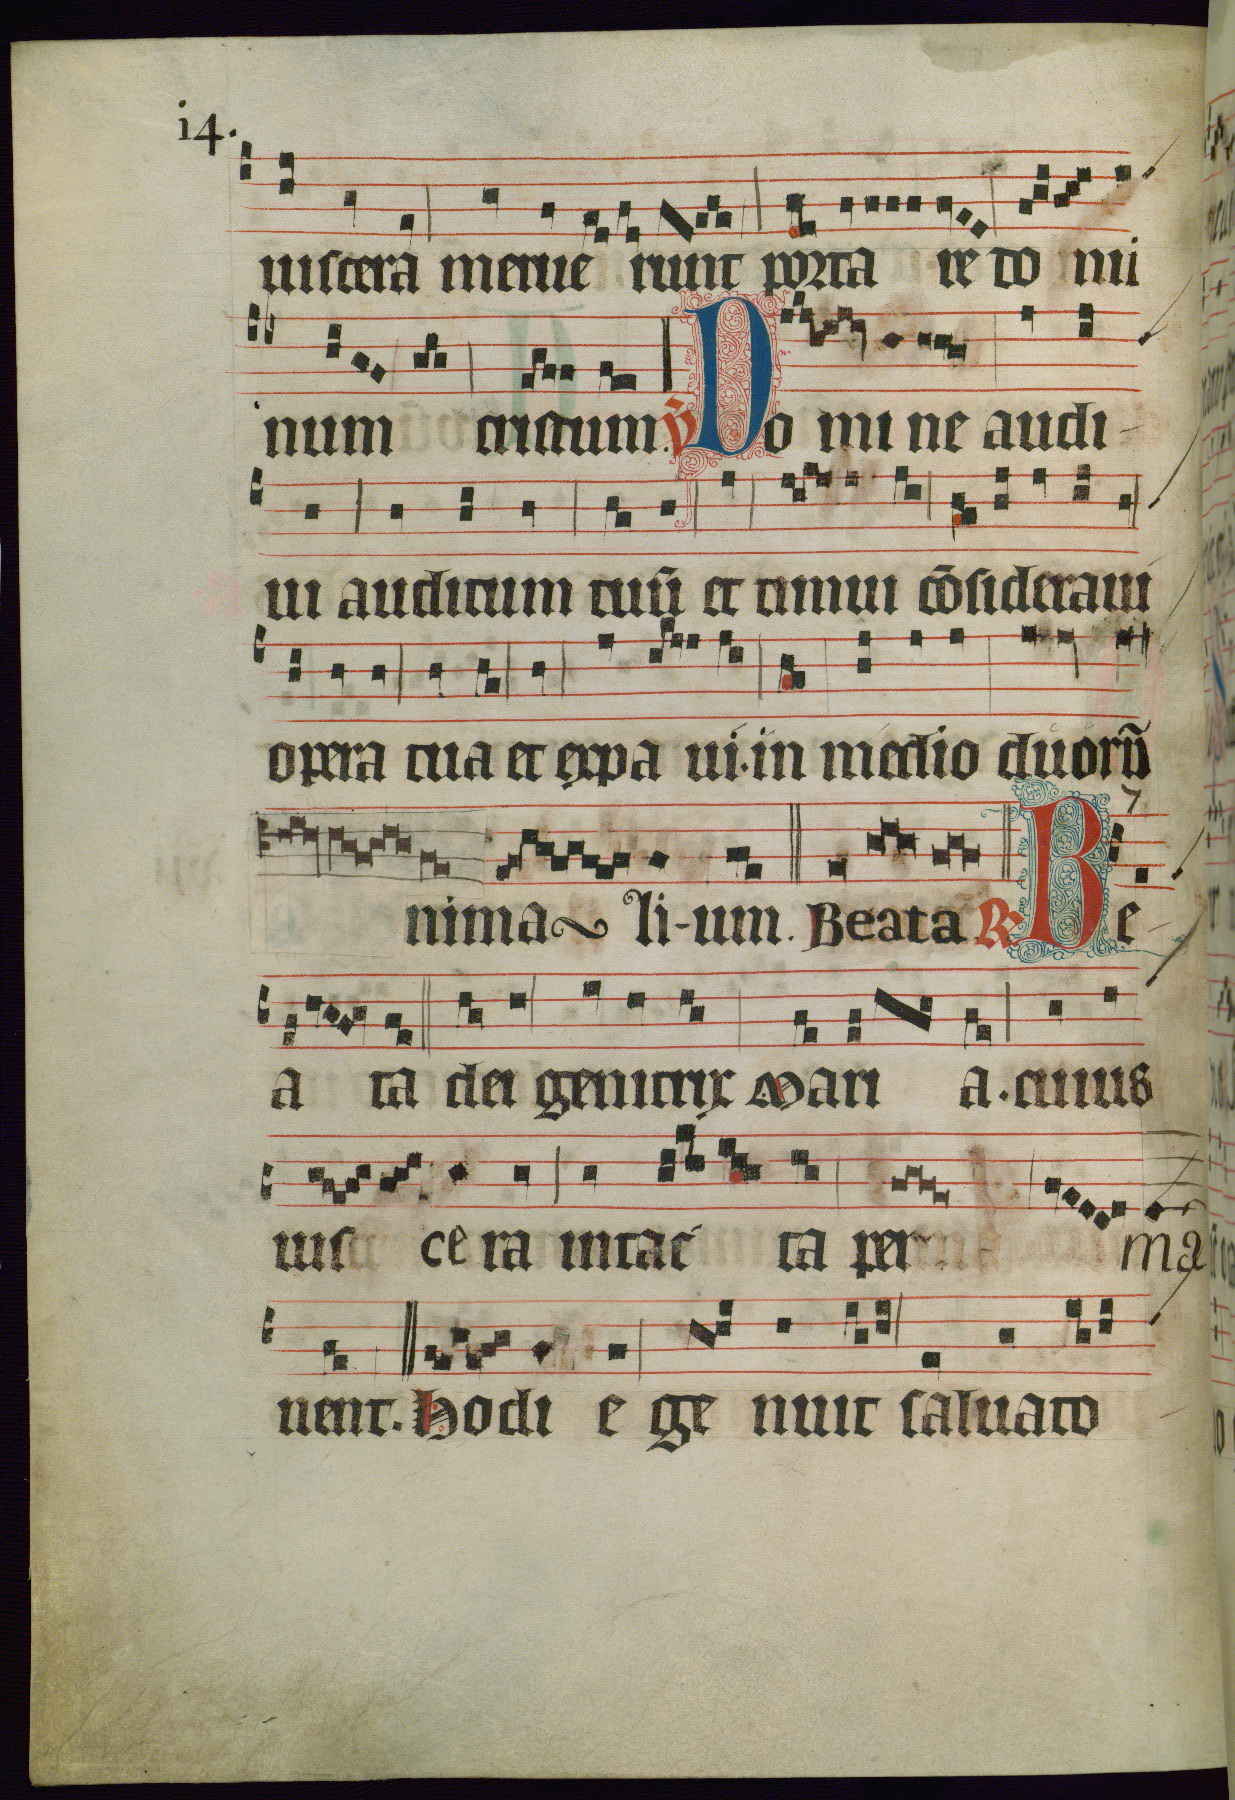 i4.
uiscera merue runt porta re do mi
num cristum. ℣ Do mi ne audi-
ui auditum tuū et timui cōsideraui
opera tua et expa ui. in medio duorū
7
nima~ li-um. Beata ℟. Be-
a ta dei genitrix Mari a. cuius
uis ce ra intac ta per ma
nent. Hodi e ge nuit saluato